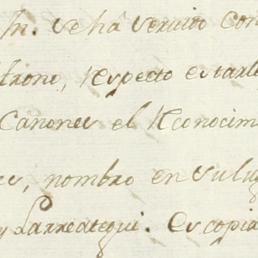 Sn. se há servido con
trono, respecto estarle
Canones el reconocim
es, nombro en su lug
y Larreategui. Es copia